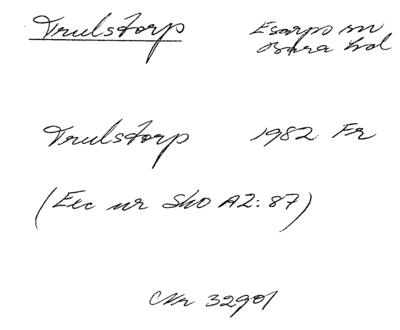 Trulstorp Esarps sn
Bara hd
Trulstorp 1982 Fr
(Exc nr Sko A2:87)
Nr 32901